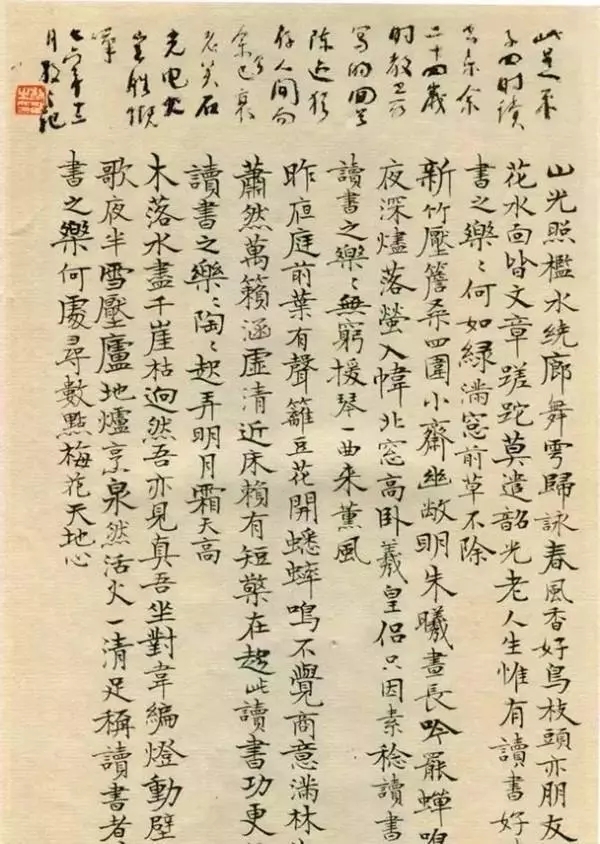 此是朱
子四时读
书乐余
二十四歲
时教卫
写的四首
陈迹犹
存人间而
余已衰
老矣石
光电火
岂胜慨
嘆
七六年十二
月散之记
山光照檻水繞廊舞雩歸詠春風香好鳥枝頭亦朋友
花水面皆文章蹉跎莫遣韶光老人生惟有讀書好
書之樂〻何如緑滿窓前草不除
新竹壓簷桑四圍小齋幽敞明朱曦晝長吟罷蟬鳴
夜深燼落螢入幃北窓高卧羲皇侣只因素稔讀書
讀書之樂〻無窮援琴一曲来薫風
昨夜庭前葉有聲籬豆花開蟋蟀鳴不覺商意滿林
蕭然萬籟涵虚清近床賴有短檠在趁此讀書功更
讀書之樂〻陶〻起弄明月霜天高
木落水盡千崖枯迥然吾亦見真吾坐對韋編燈動壁
歌夜半雪壓廬地爐烹泉然活火一清足稱讀書者
書之樂何處尋數點梅花天地心